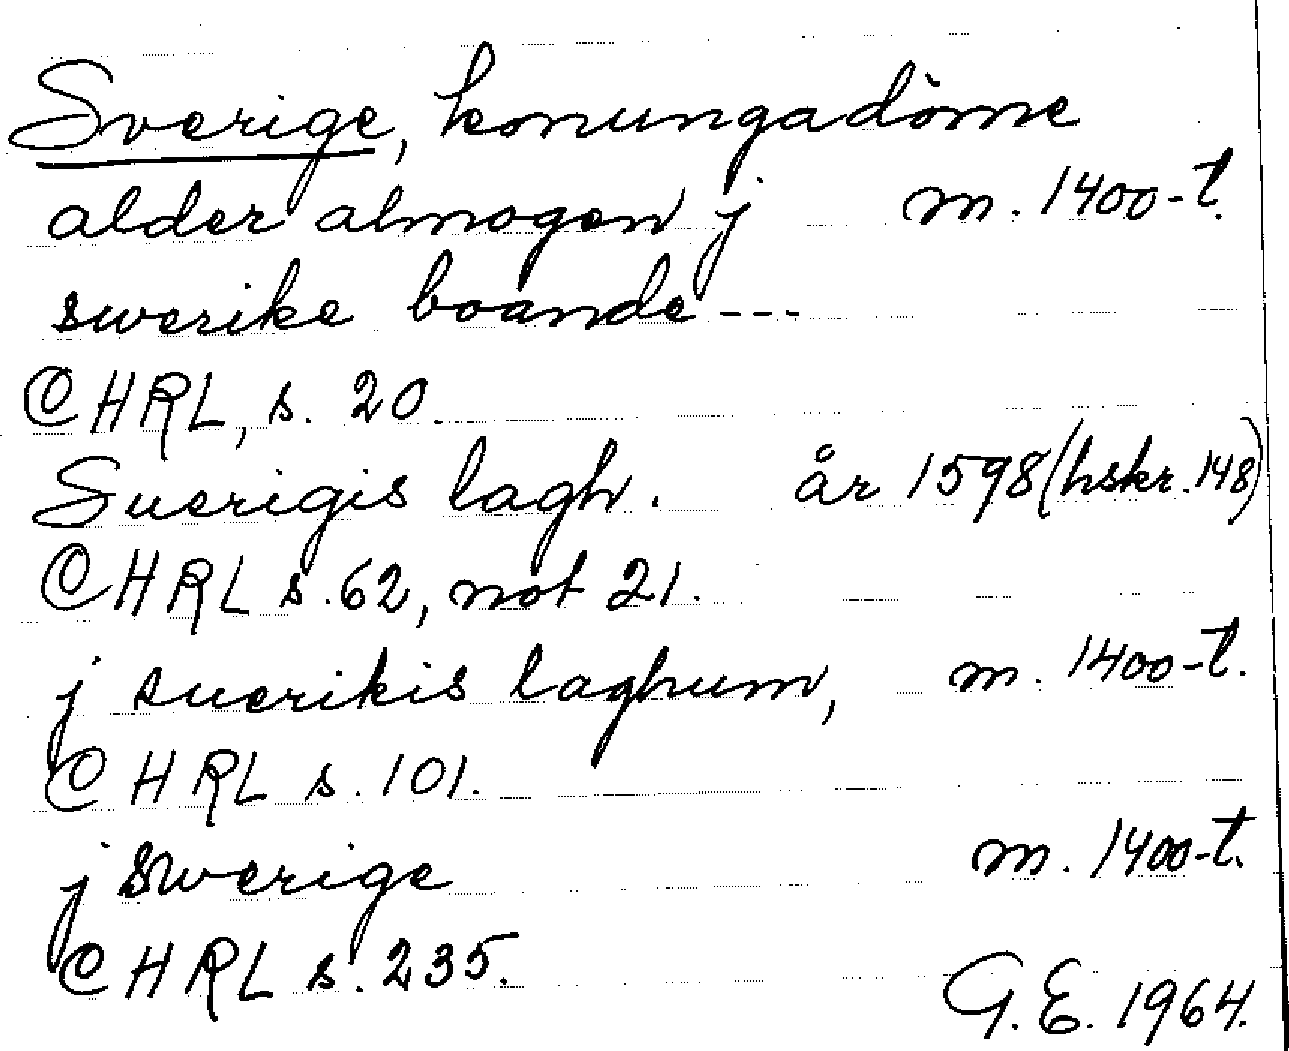 Sverige, konungadöme
alder almogen j m. 1400-t.
swerike boande ---
CHRL, s. 20.
Suerigis lagh. år 1598 (hskr. 148)
CHRL s. 62, not 21.
j suerikis laghum, m. 1400-t.
CHRL s. 101.
j Swerige m. 1400-t.
CHRL s. 235.
G. E. 1964.